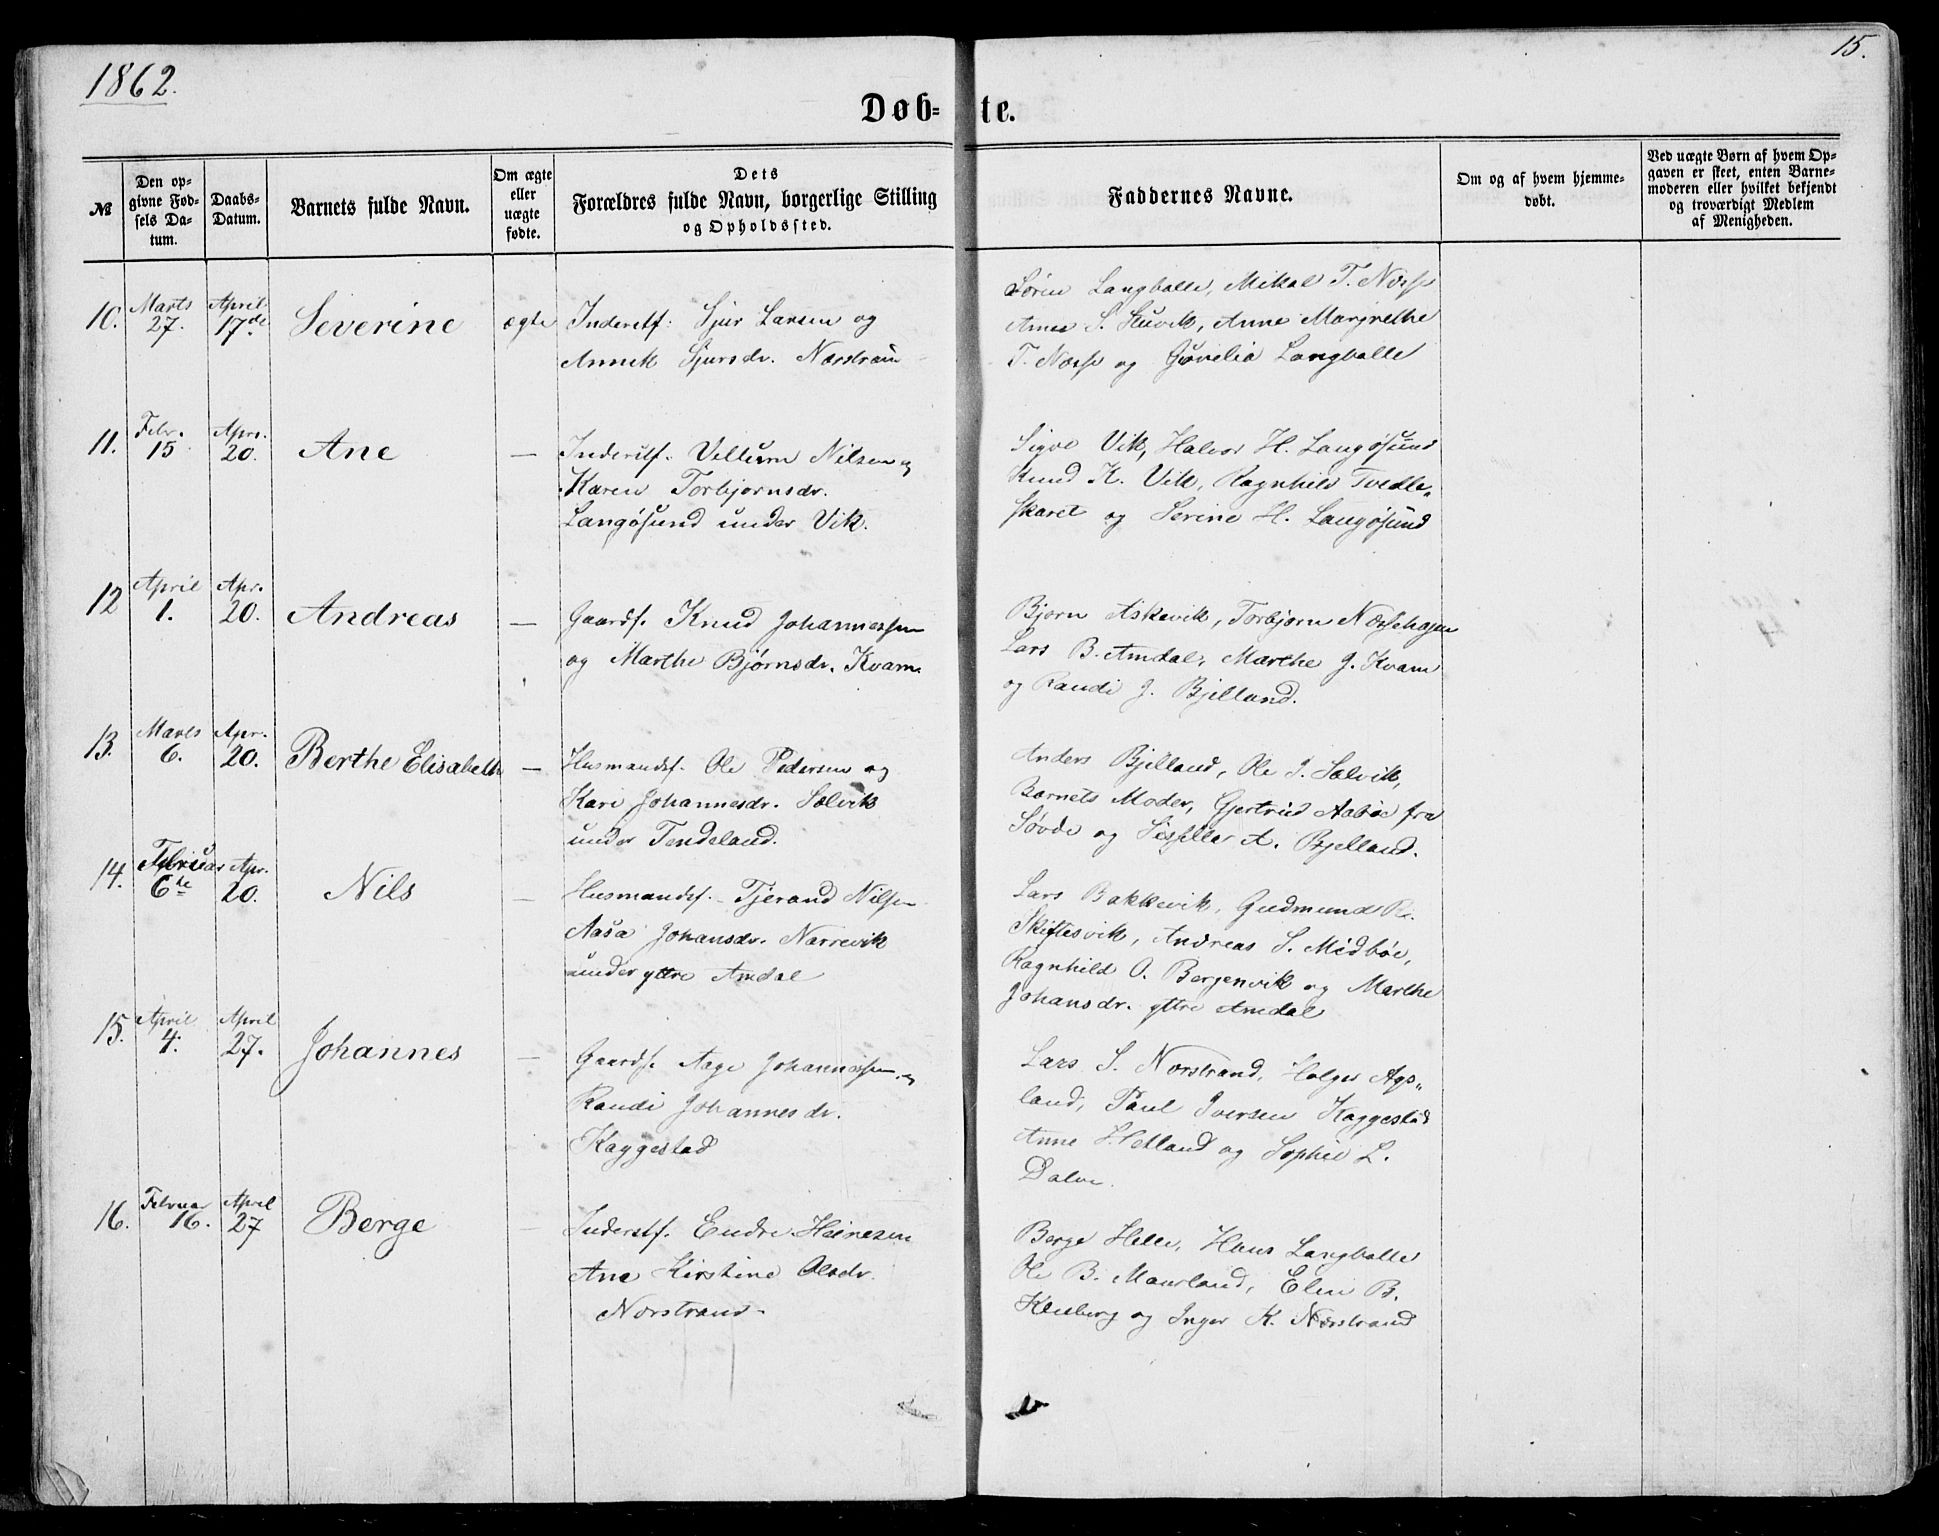 1862.
15.
Døb-te.
№
Den op-
givne Fød-
sels Da-
tum.
Daabs-
Datum.
Barnets fulde Navn.
Om ægte
eller
uægte
fødte.
Dets
Forældres fulde Navn, borgerlige Stilling
og Opholdssted.
Faddernes Navne.
Om og af hvem hjemme-
døbt.
Ved uægte Børn af hvem Op-
gaven er skeet, enten Barne-
moderen eller hvilket bekjendt
og troværdigt Medlem
af Menigheden.
10.
Marts
27.
April
17de
Severine
ægte
Inderstf. Sjur Larsen og
Sjursdr. Nærstrand
Sören Langballe, Mikal T. Næsse
Anne Margrethe
T. Næss og Langballe
11.
Febr.
15
Apr.
20.
Ane
—
Inderstf. Nilsen og
Karen Torbjørnsdr.
Langøsund under Vik.
Sigve Vik, Halvor H. Langøsund
Knud K. Vik, Ragnhild Tvedte-
skaret og Serine H. Langøsund
12
April
1.
Apr.
20.
Andreas
—
Gaardf. Knud Johannessen
og Marthe Bjørnsdr. Kvam
Bjørn Askevik, Torbjørn
Lars B. Amdal, Marthe J. Kvam
og Randi J. Bjelland.
13.
Marts
6.
Apr.
20.
Berthe Elisabeth
—
Husmandsf. Ole Pedersen og
Kari Johannesdr. Salvik
under Tendeland.
Anders Bjelland, Ole J. Salvik,
Barnets Moder, Gjertrud Aabøe fra
Søvde og A. Bjelland.
14.
Februar
6te
Apr.
20.
Nils
—
Husmandsf. Tjerand Nilsen
Aasa Johansdr. Narrevik
under yttre Amdal
Lars Bakkevik, Gudmund R.
Skiftesvik, Andreas S. Midbøe,
Ragnhild O. Bergenvik og Marthe
Johansdr. yttre Amdal
15.
April
4.
April
27.
Johannes
—
Gaardf. Aage Johannessen og
Randi Johannesdr.
Kaggestad
Lars S. Nærstrand, Holger Aps-
land, Paul Iversen Kaggestad
Anne Hetland og Sophie L.
Dalve.
16.
Februar
16.
April
27
Berge
—
Inderstf. Endre Heinesen
Ane Kirstine Olsdr.
Nærstrand
Berge Helle, Hans Langballe
Ole B. Maurland, Elen B.
Kleiberg og Inger K. Nærstrand